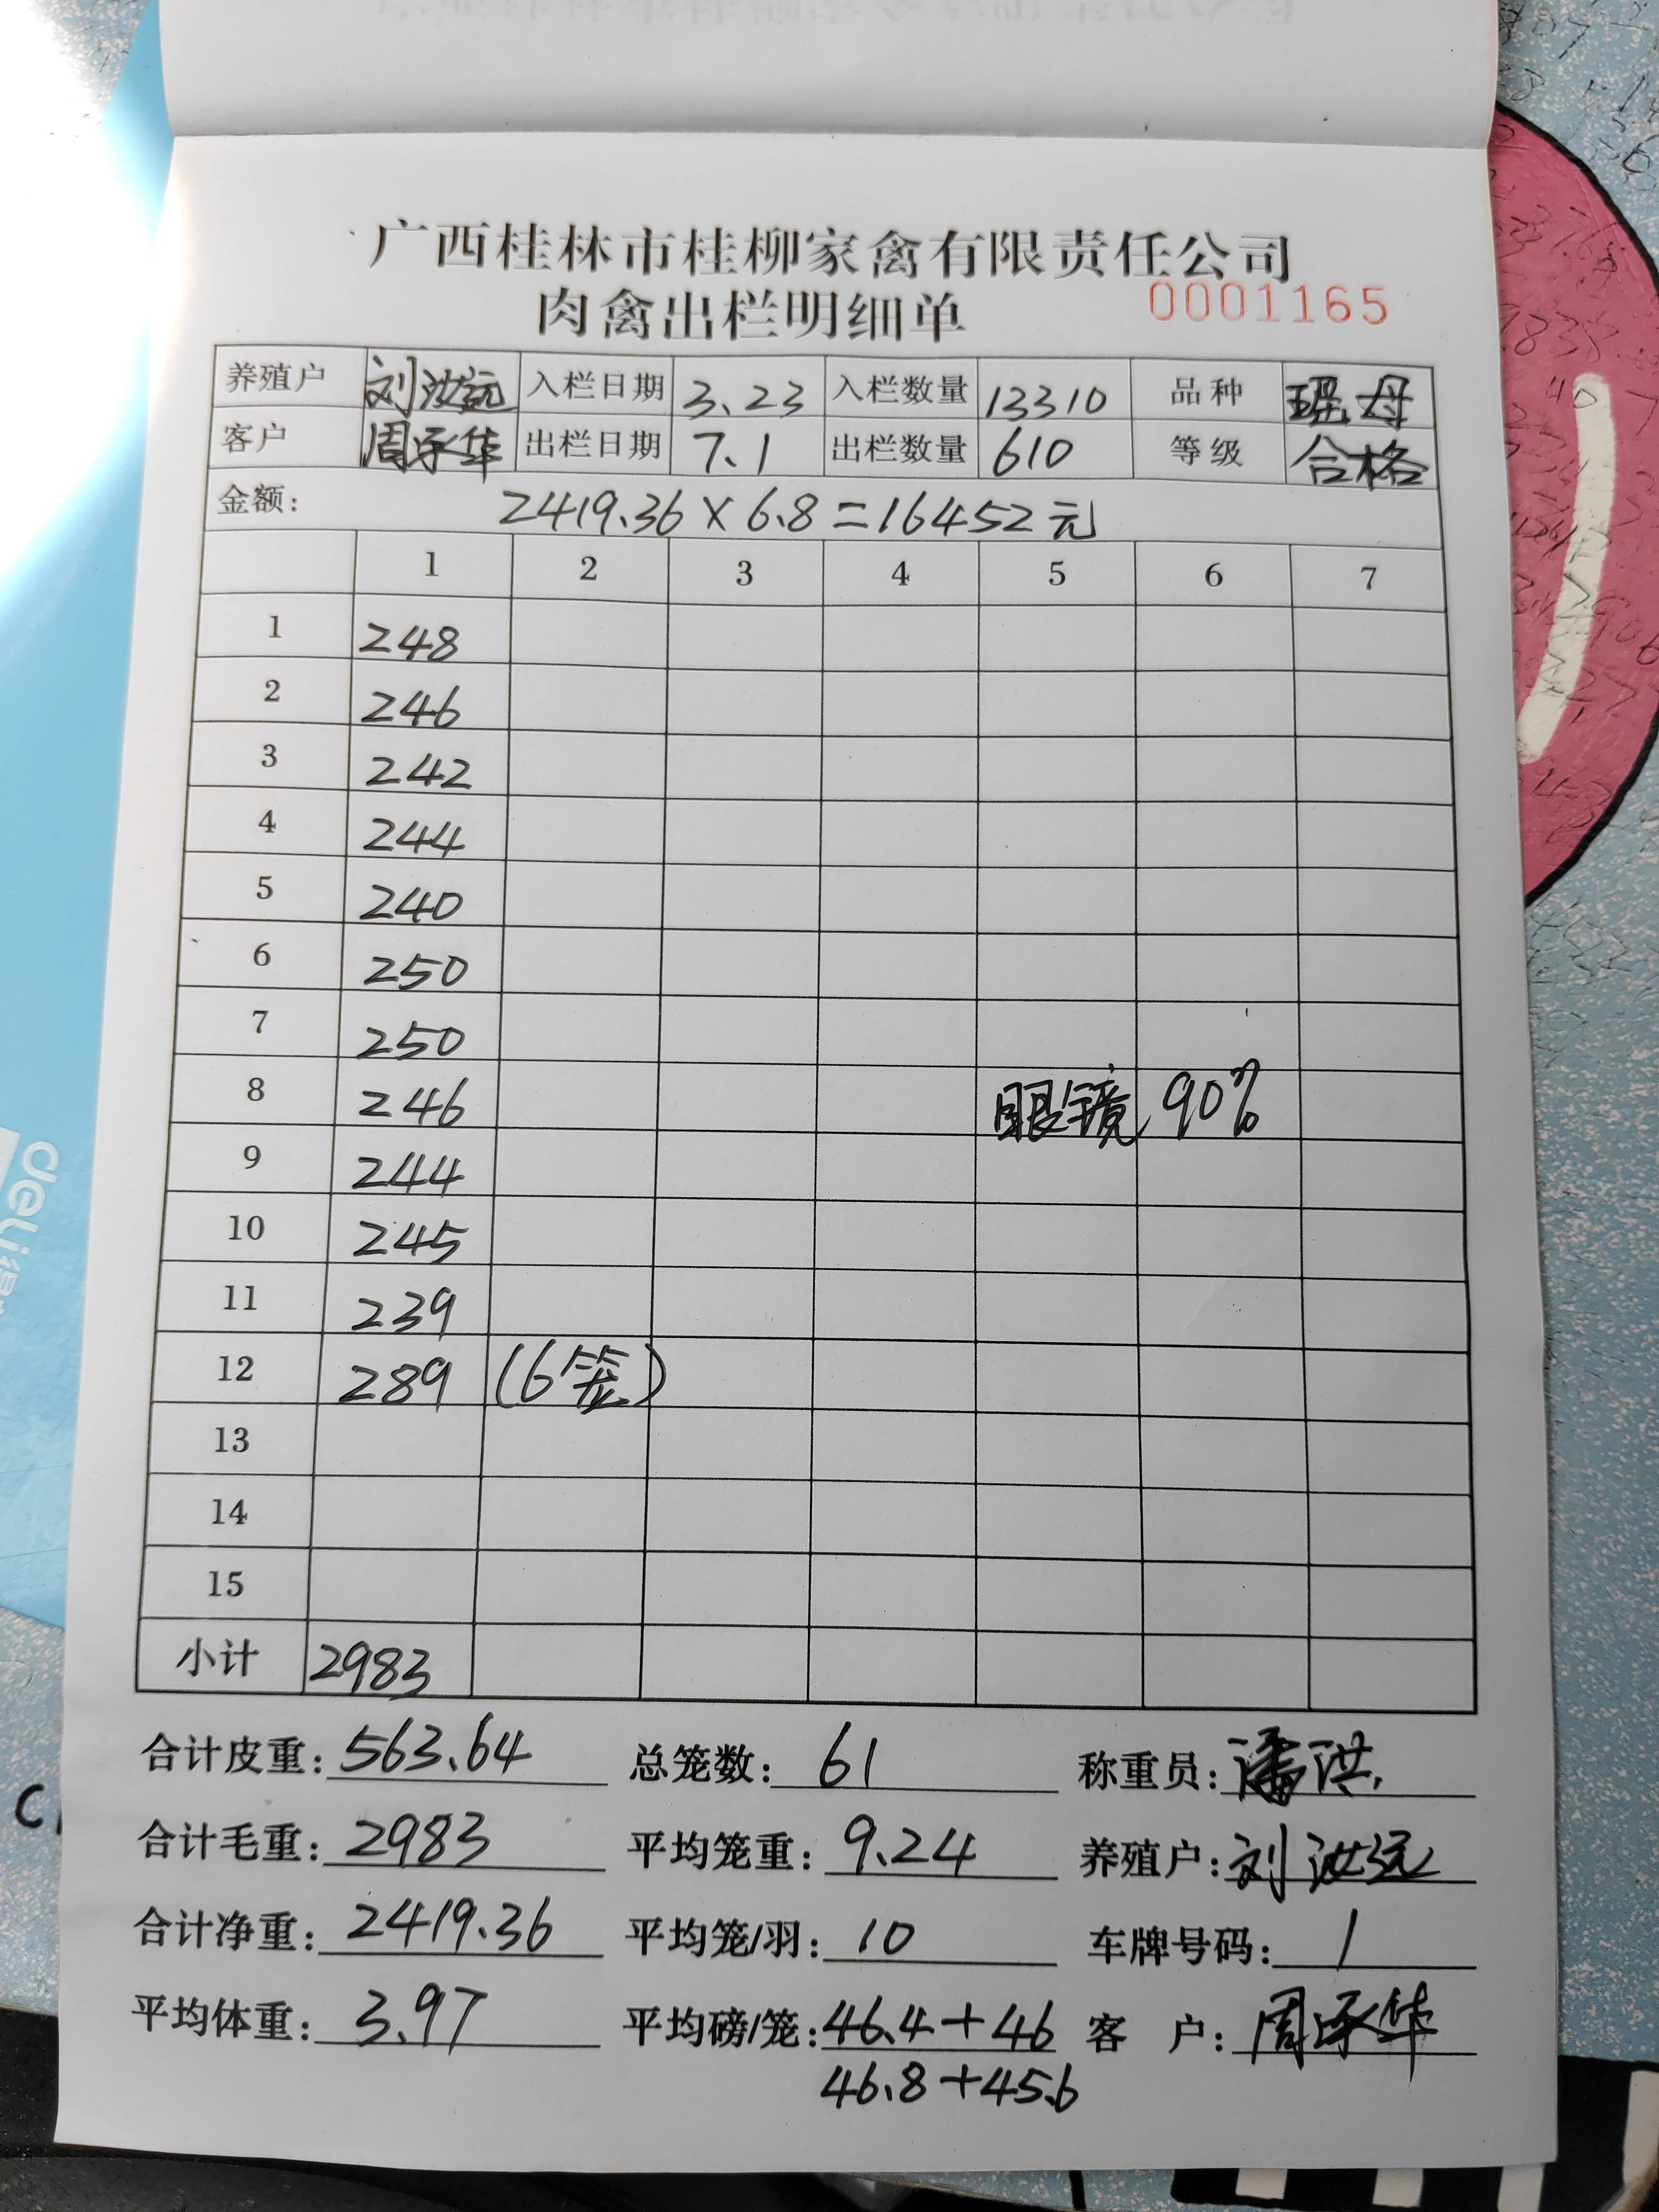 广西桂林市桂柳家禽有限责任公司
肉禽出栏明细单 0001165
养殖户 刘汝远 入栏日期 3.23 入栏数量 13310 品种 瑶母
客户 周承华 出栏日期 7.1 出栏数量 610 等级 合格
金额: 2419.36×6.8=16452元
1 2 3 4 5 6 7
1 248
2 246
3 242
4 244
5 240
6 250
7 250
8 246 眼镜 90%
9 244
10 245
11 239
12 289 (6笼)
13
14
15
小计 2983
合计皮重: 563.64 总笼数: 61 称重员: 潘洪
合计毛重: 2983 平均笼重: 9.24 养殖户: 刘汝远
合计净重: 2419.36 平均笼/羽: 10 车牌号码: 1
平均体重: 3.97 平均磅/笼: 46.4+46 客 户: 周承华
46.8+45.6
deli